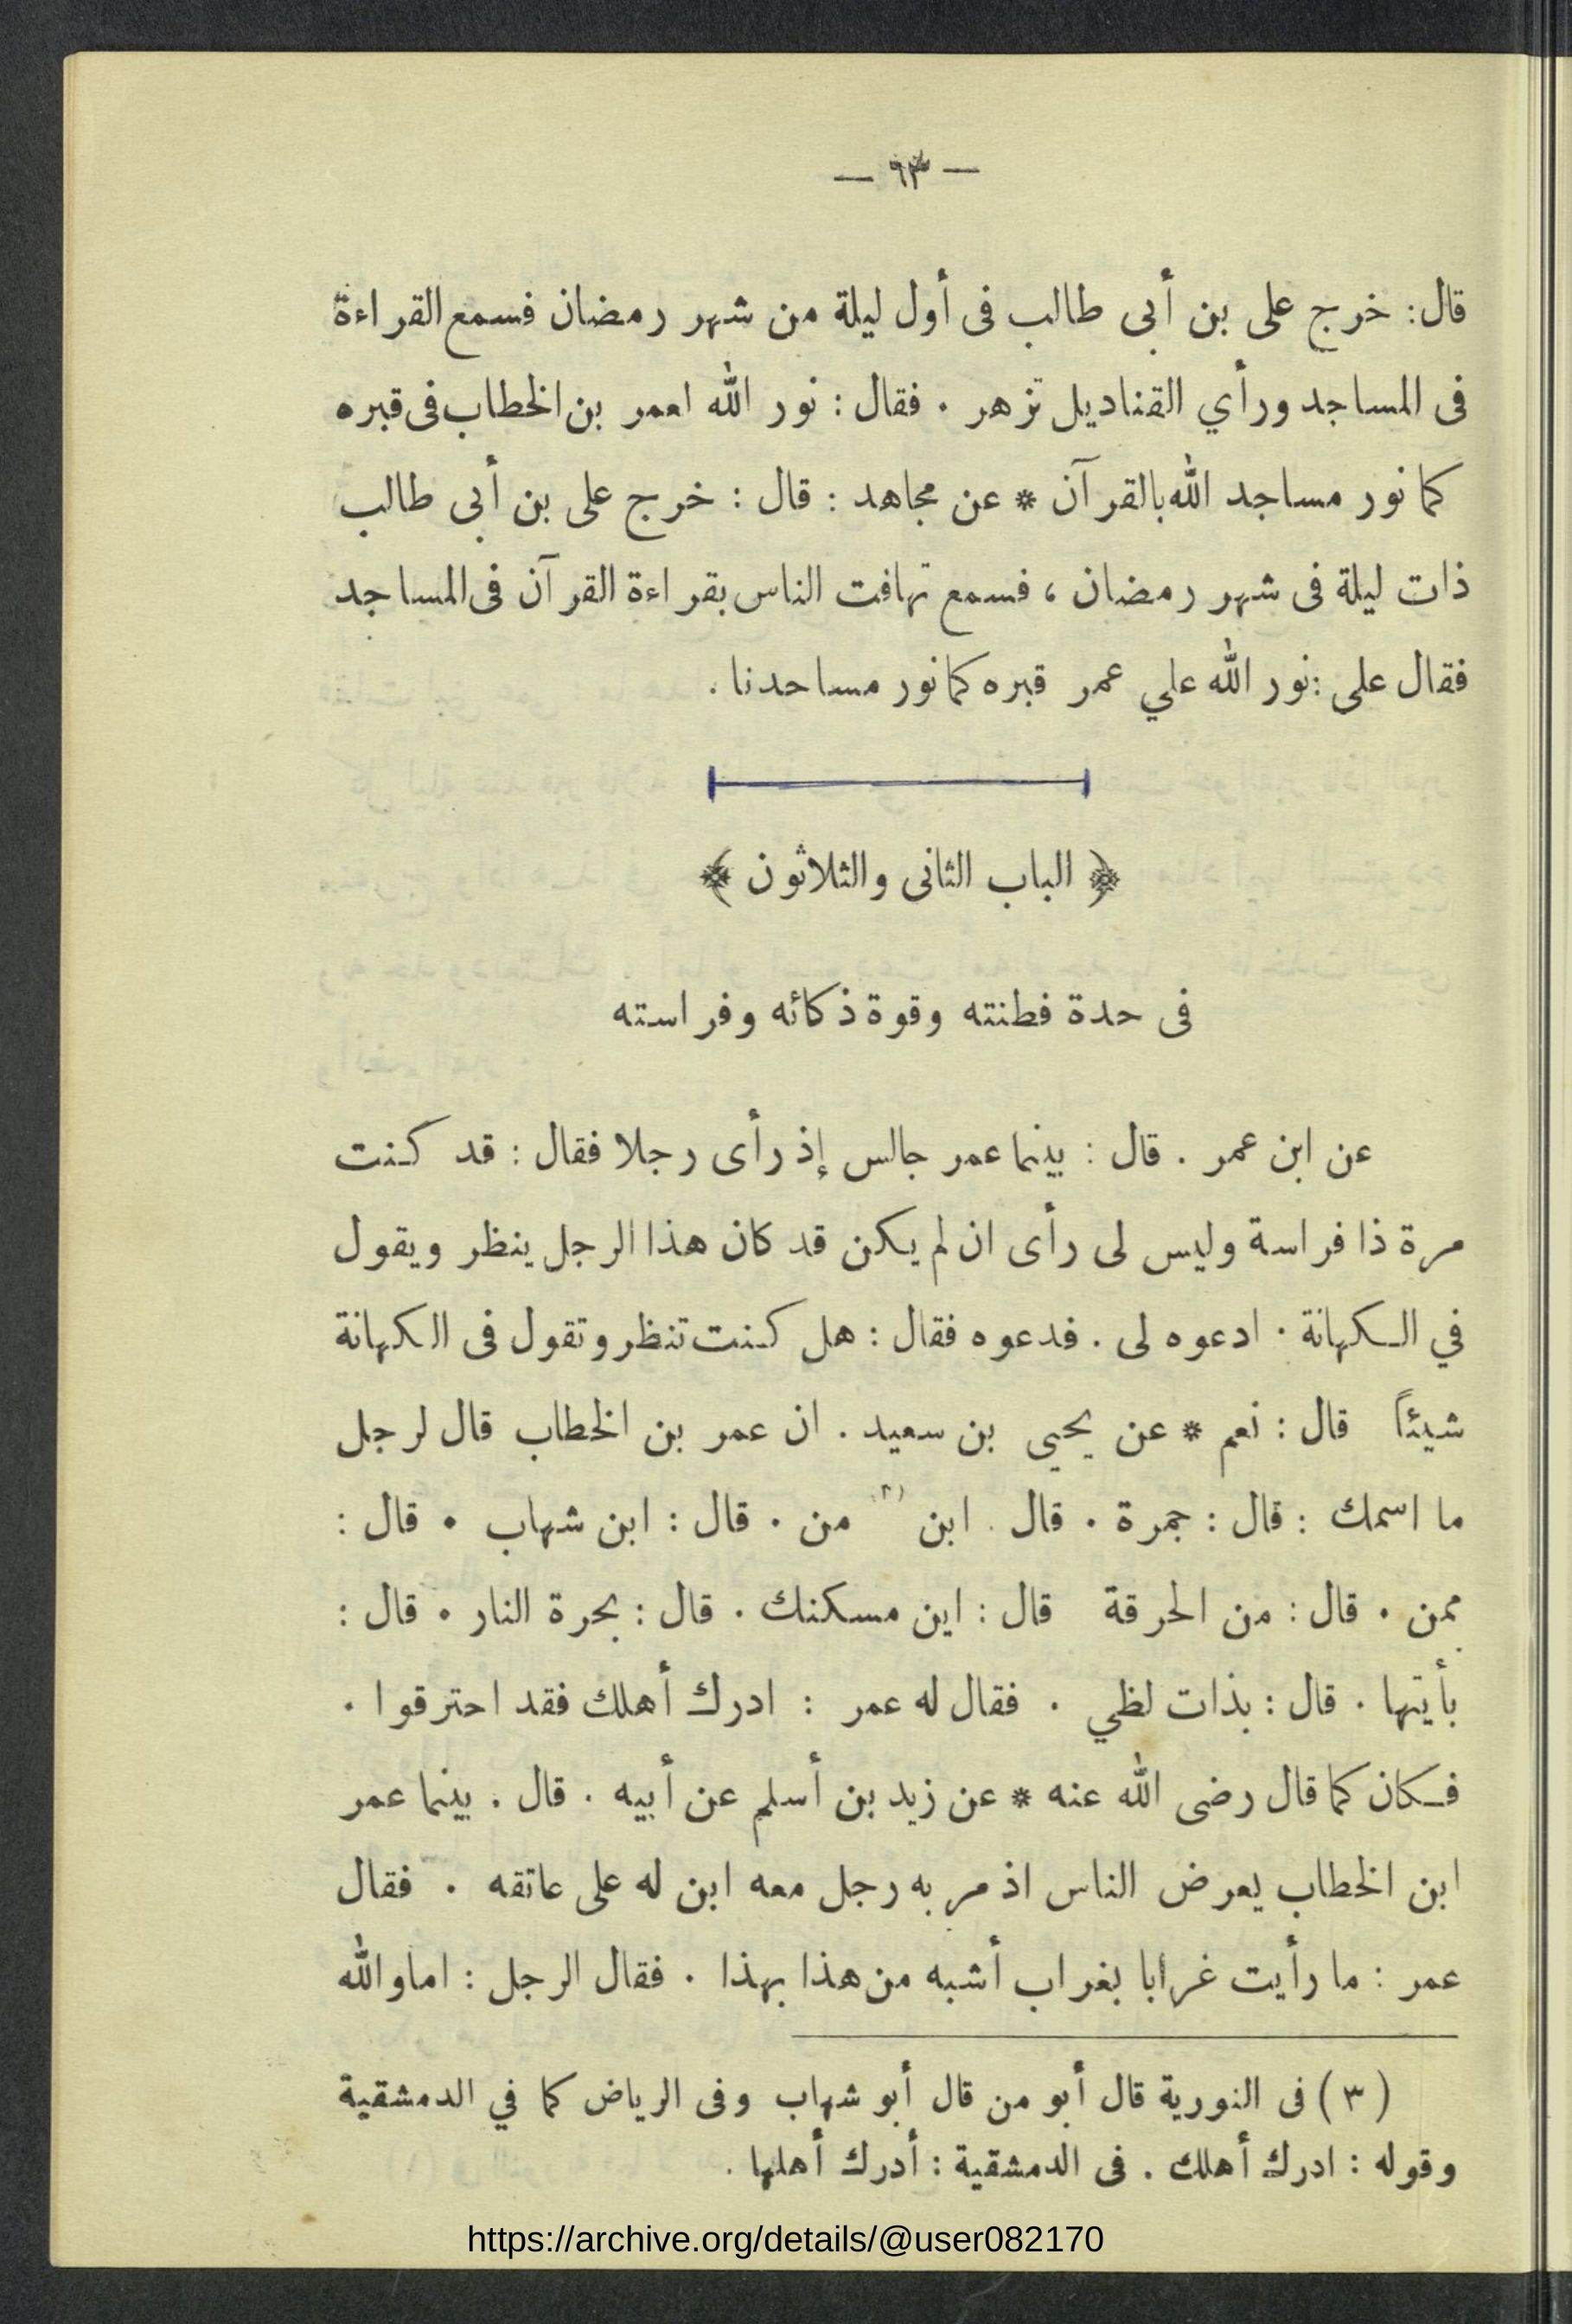 — ٩٣ —
قال: خرج على بن أبى طالب فى أول ليلة من شهر رمضان فسمع القراءة
فى المساجد ورأي القناديل تزهر . فقال : نور الله لعمر بن الخطاب فى قبره
كما نور مساجد الله بالقرآن * عن مجاهد : قال : خرج على بن أبى طالب
ذات ليلة فى شهر رمضان ، فسمع تهافت الناس بقراءة القرآن فى المساجد
فقال على : نور الله علي عمر قبره كما نور مساحدنا .
﴿ الباب الثانى والثلاثون ﴾
فى حدة فطنته وقوة ذكائه وفراسته
عن ابن عمر . قال : بينما عمر جالس إذ رأى رجلا فقال : قد كنت
مرة ذا فراسة وليس لى رأى ان لم يكن قد كان هذا الرجل ينظر ويقول
في الكهانة . ادعوه لى . فدعوه فقال : هل كنت تنظر وتقول فى الكهانة
شيئاً قال : نعم * عن يحيي بن سعيد . ان عمر بن الخطاب قال لرجل
ما اسمك : قال : جمرة . قال . ابن (٣) من . قال : ابن شهاب . قال :
ممن . قال : من الحرقة قال : اين مسكنك . قال : بحرة النار . قال :
بأيتها . قال : بذات لظي . فقال له عمر : ادرك أهلك فقد احترقوا .
فكان كما قال رضى الله عنه * عن زيد بن أسلم عن أبيه . قال . بينما عمر
ابن الخطاب يعرض الناس اذ مر به رجل معه ابن له على عاتقه . فقال
عمر : ما رأيت غرابا بغراب أشبه من هذا بهذا . فقال الرجل : اما والله
( ٣ ) فى النورية قال أبو من قال أبو شهاب وفى الرياض كما في الدمشقية
وقوله : ادرك أهلك . فى الدمشقية : أدرك أهلها .
https://archive.org/details/@user082170